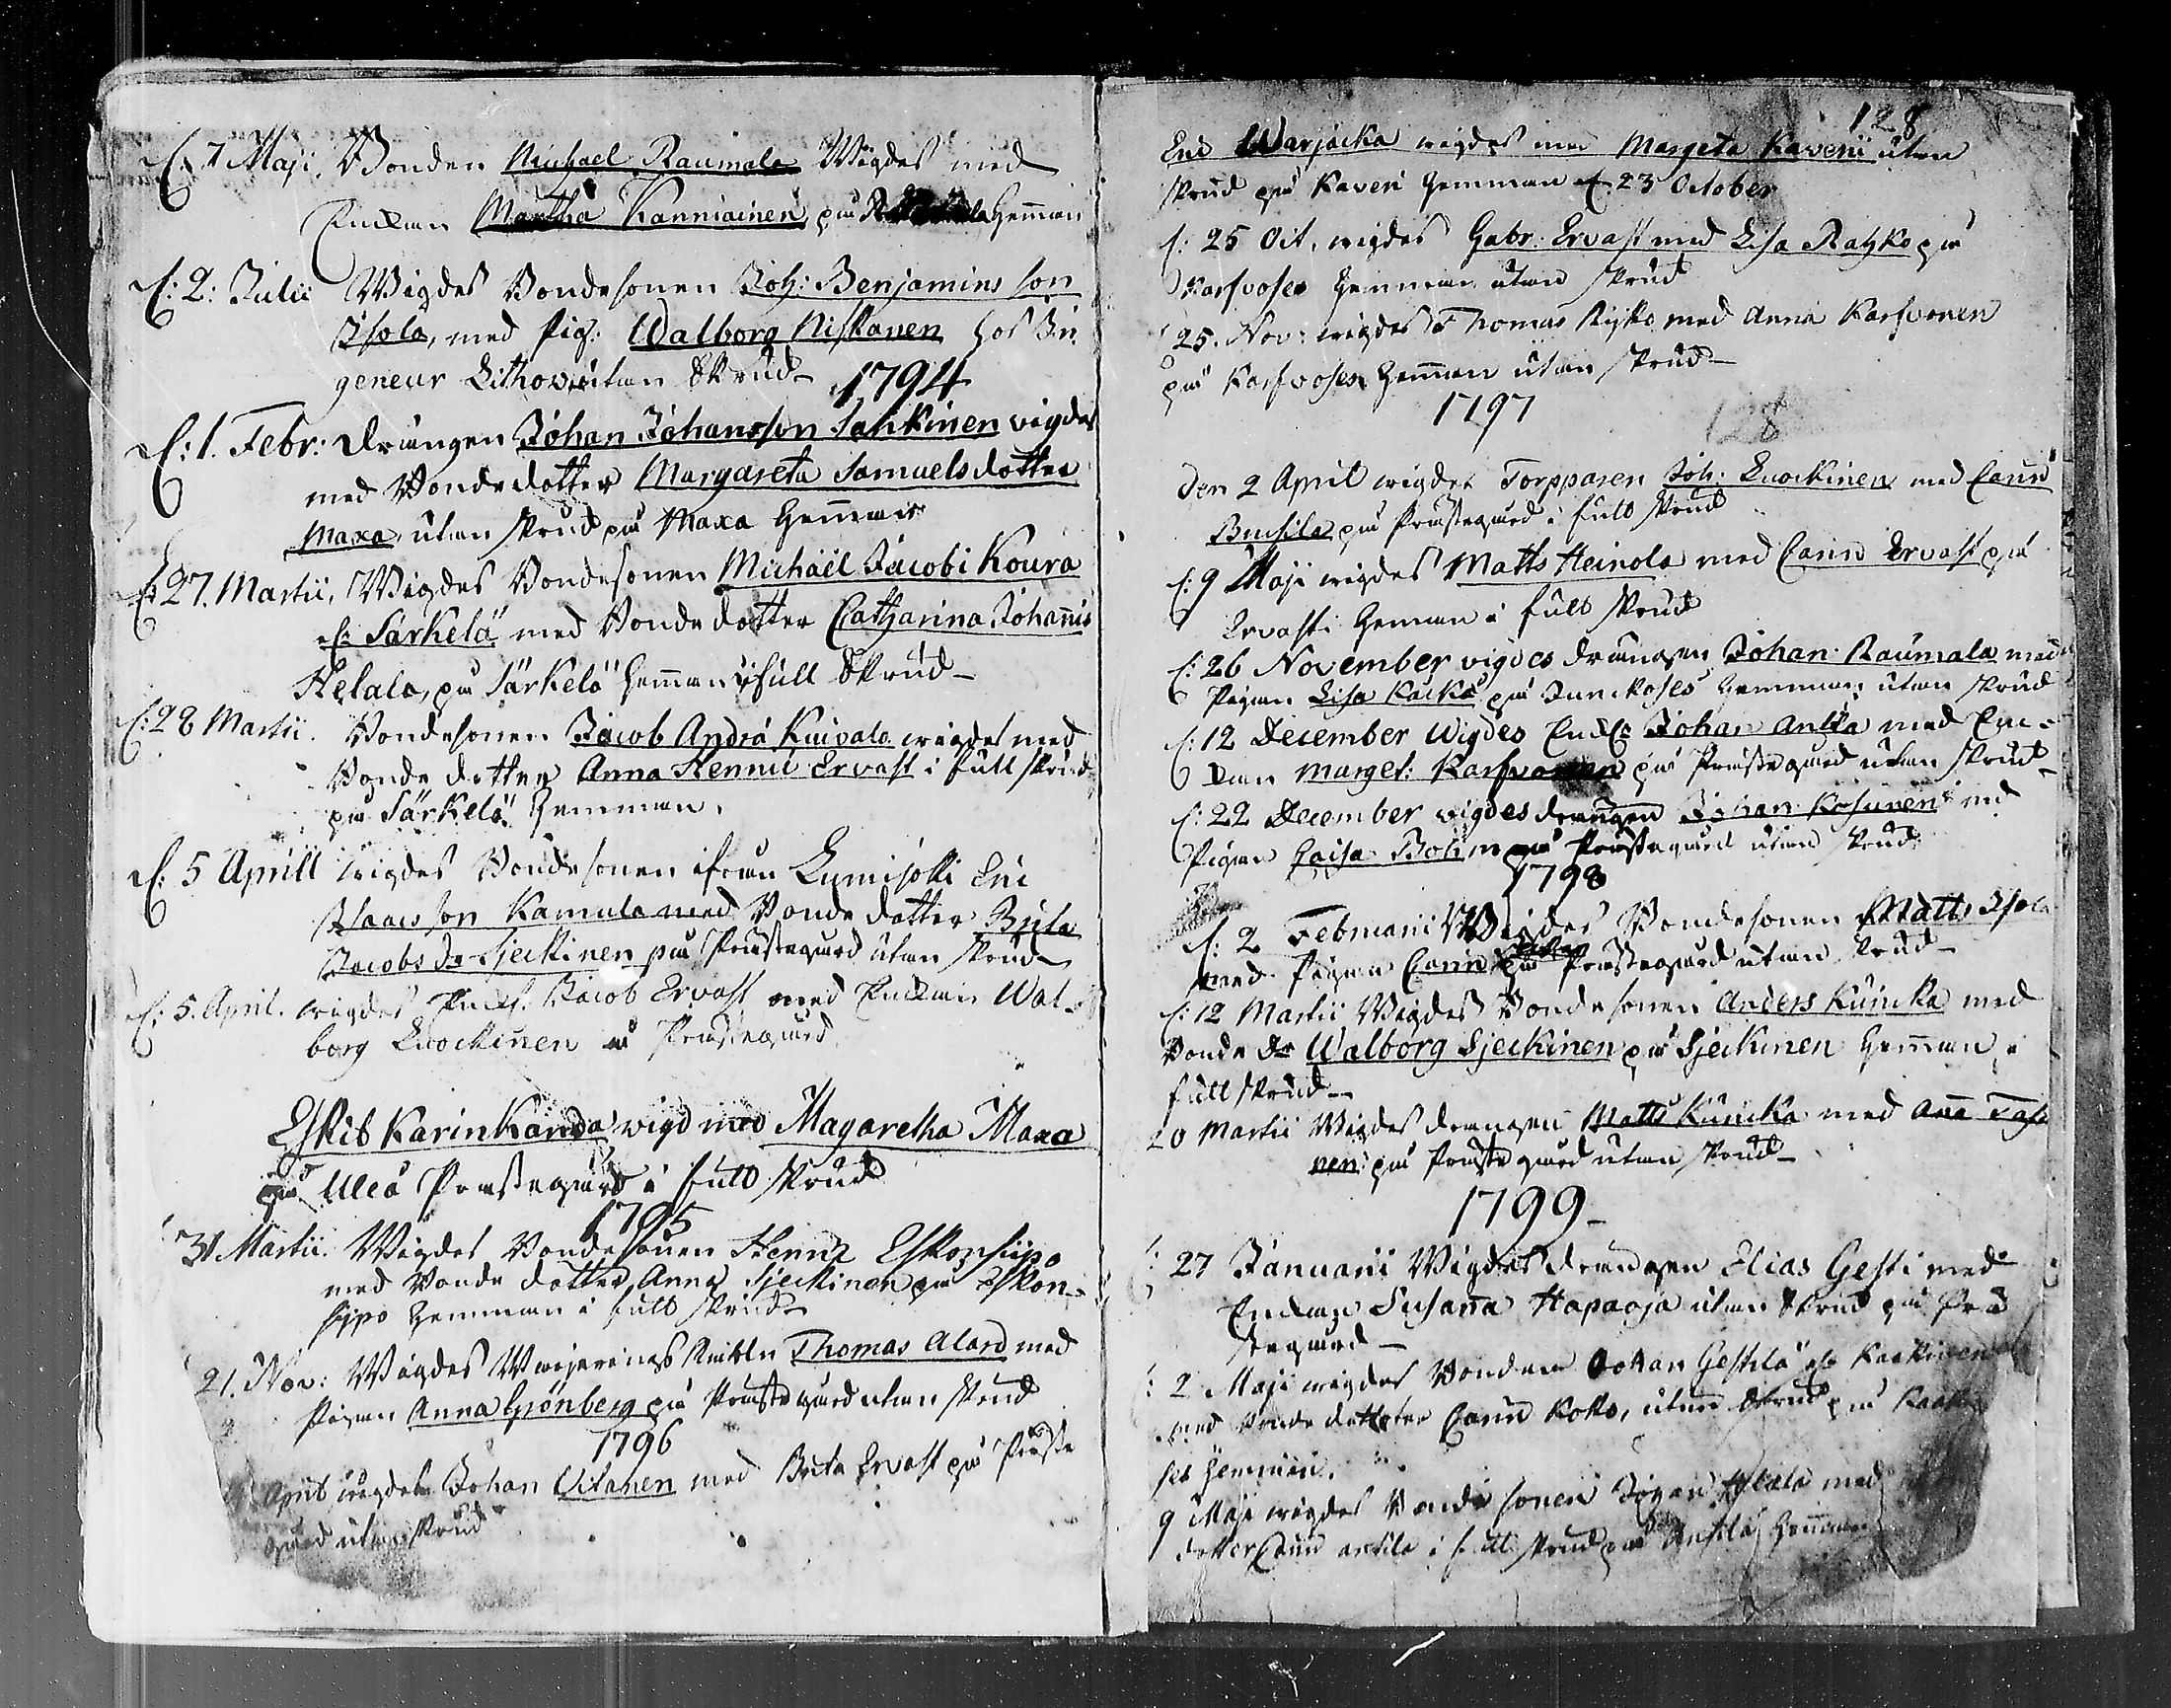 d. 7 Maji, Bonden Michael Raumala Wigdes med
Enckan Martha Kanniainen på Hemman
d: 2: Julii Wigdes Bondesonen Joh: Benjamins son
Isola, med pig: Walborg Niskanen hos In
geneur Lithovii utan Skrud_
1794
d: 1. Febr: drängen Johan Johansson Sahkinen vigdes
med Bondedotter Margareta Samuelsdotter
Maxa, utan skrud på Maxa Hemman
d: 27. Martii, Wigdes Bondesonen Michaël Jacobi Koura
el: Särkelä med Bondedotter Catharina Johannis
Helala, på Särkelä hemman i full Skrud_
d: 28 Martii. Bondesonen Jacob Andrä Kuivala wigdes med
Bonde dotter Anna Hennii Ervast i full skrud
på Särkelä Hemman.
d: 5 Aprill wigdes Bondesonen ifrån Lumijoki Eric
Isaacsson Kamula med Bonde dotter Brita
Jacobs dr Sjeckinen på Prästegård utan skrud_
d: 5. April. wigdes Enckl. Jacob Ervast med Enckan Wal-
borg Luockinen å Prästegård
Eskil Karinkanda wigd med Magaretha Maxa
på Uleå Prästegård i full skrud
1795
31 Martii. Wigdes Bondesonen Henric Eskonsiipo
med Bonde dotter Anna Sjeckinen på Eskon-
sipo Hemman i full skrud_
21. Nov: Wigdes Thomas Alard med
Pigan Anna Grönberg på Prästegård utan skrud
1796
April wigdes Johan Uitanen med Brita Ervast på Präste
gård utan skrud
128
Eric Warjacka wigdes med Margeta Kaveni utan
skrud på Kaveri Hemman d. 23 October
d: 25 Oct. wigdes Gabr: Ervast med Lisa Ratzko på
Karfvoses Hemman utan skrud
25. Nov: wigdes Thomas Rijko med Anna Karfvonen
på Karfvoses Hemman utan skrud_
1797
128
Den 2 April wigdes Torpparen Joh: Luockinen med Carin
Buchila på Prästegård i full skrud
d: 9 Maji wigdes Matts Heinola med Carin Ervast på
Ervasti Hemman i full skrud
d: 26 November vigdes drängen Johan Raumala med
Pigan Lisa Kacko på Junckoses Hemman utan skrud
d: 12 December Wigdes Enckl: Johan Antta med En-
kan Marget: Karfvonen på Prästegård utan skrud_
d: 22 December wigdes drängen Johan Kosunen med
Pigan Caisa Bohm på Prästegård utan skrud
1798
d: 2 Februarii Wigdes Bondesonen Matts Isola
med Pigan Carin på Prästegård utan skrud_
d: 12 Martii Wigdes Bondesonen Anders Kuncka med
Bonde dr Walborg Sjeckinen på Sjeckinen Hemman i
full skrud_
20 Martii Wigdes drängen Matts Kuncka med Anna Tasi
nen på Prästegård utan skrud_
1799_
27 Januarii Wigdes drängen Elias Gesti med
Enckan Susanna Hapaoja utan Skrud på Prä
stegård_
: 2 Maji wigdes Bonden Johan Gestilä el: Kackinen
med Bonde dotter Carin Koko, utan skrud på Kacki
ses Hemman.
9 Maji wigdes Bonde sonen Johan Alala med
dotter Carin Antila i full skrud på Antila Hemman